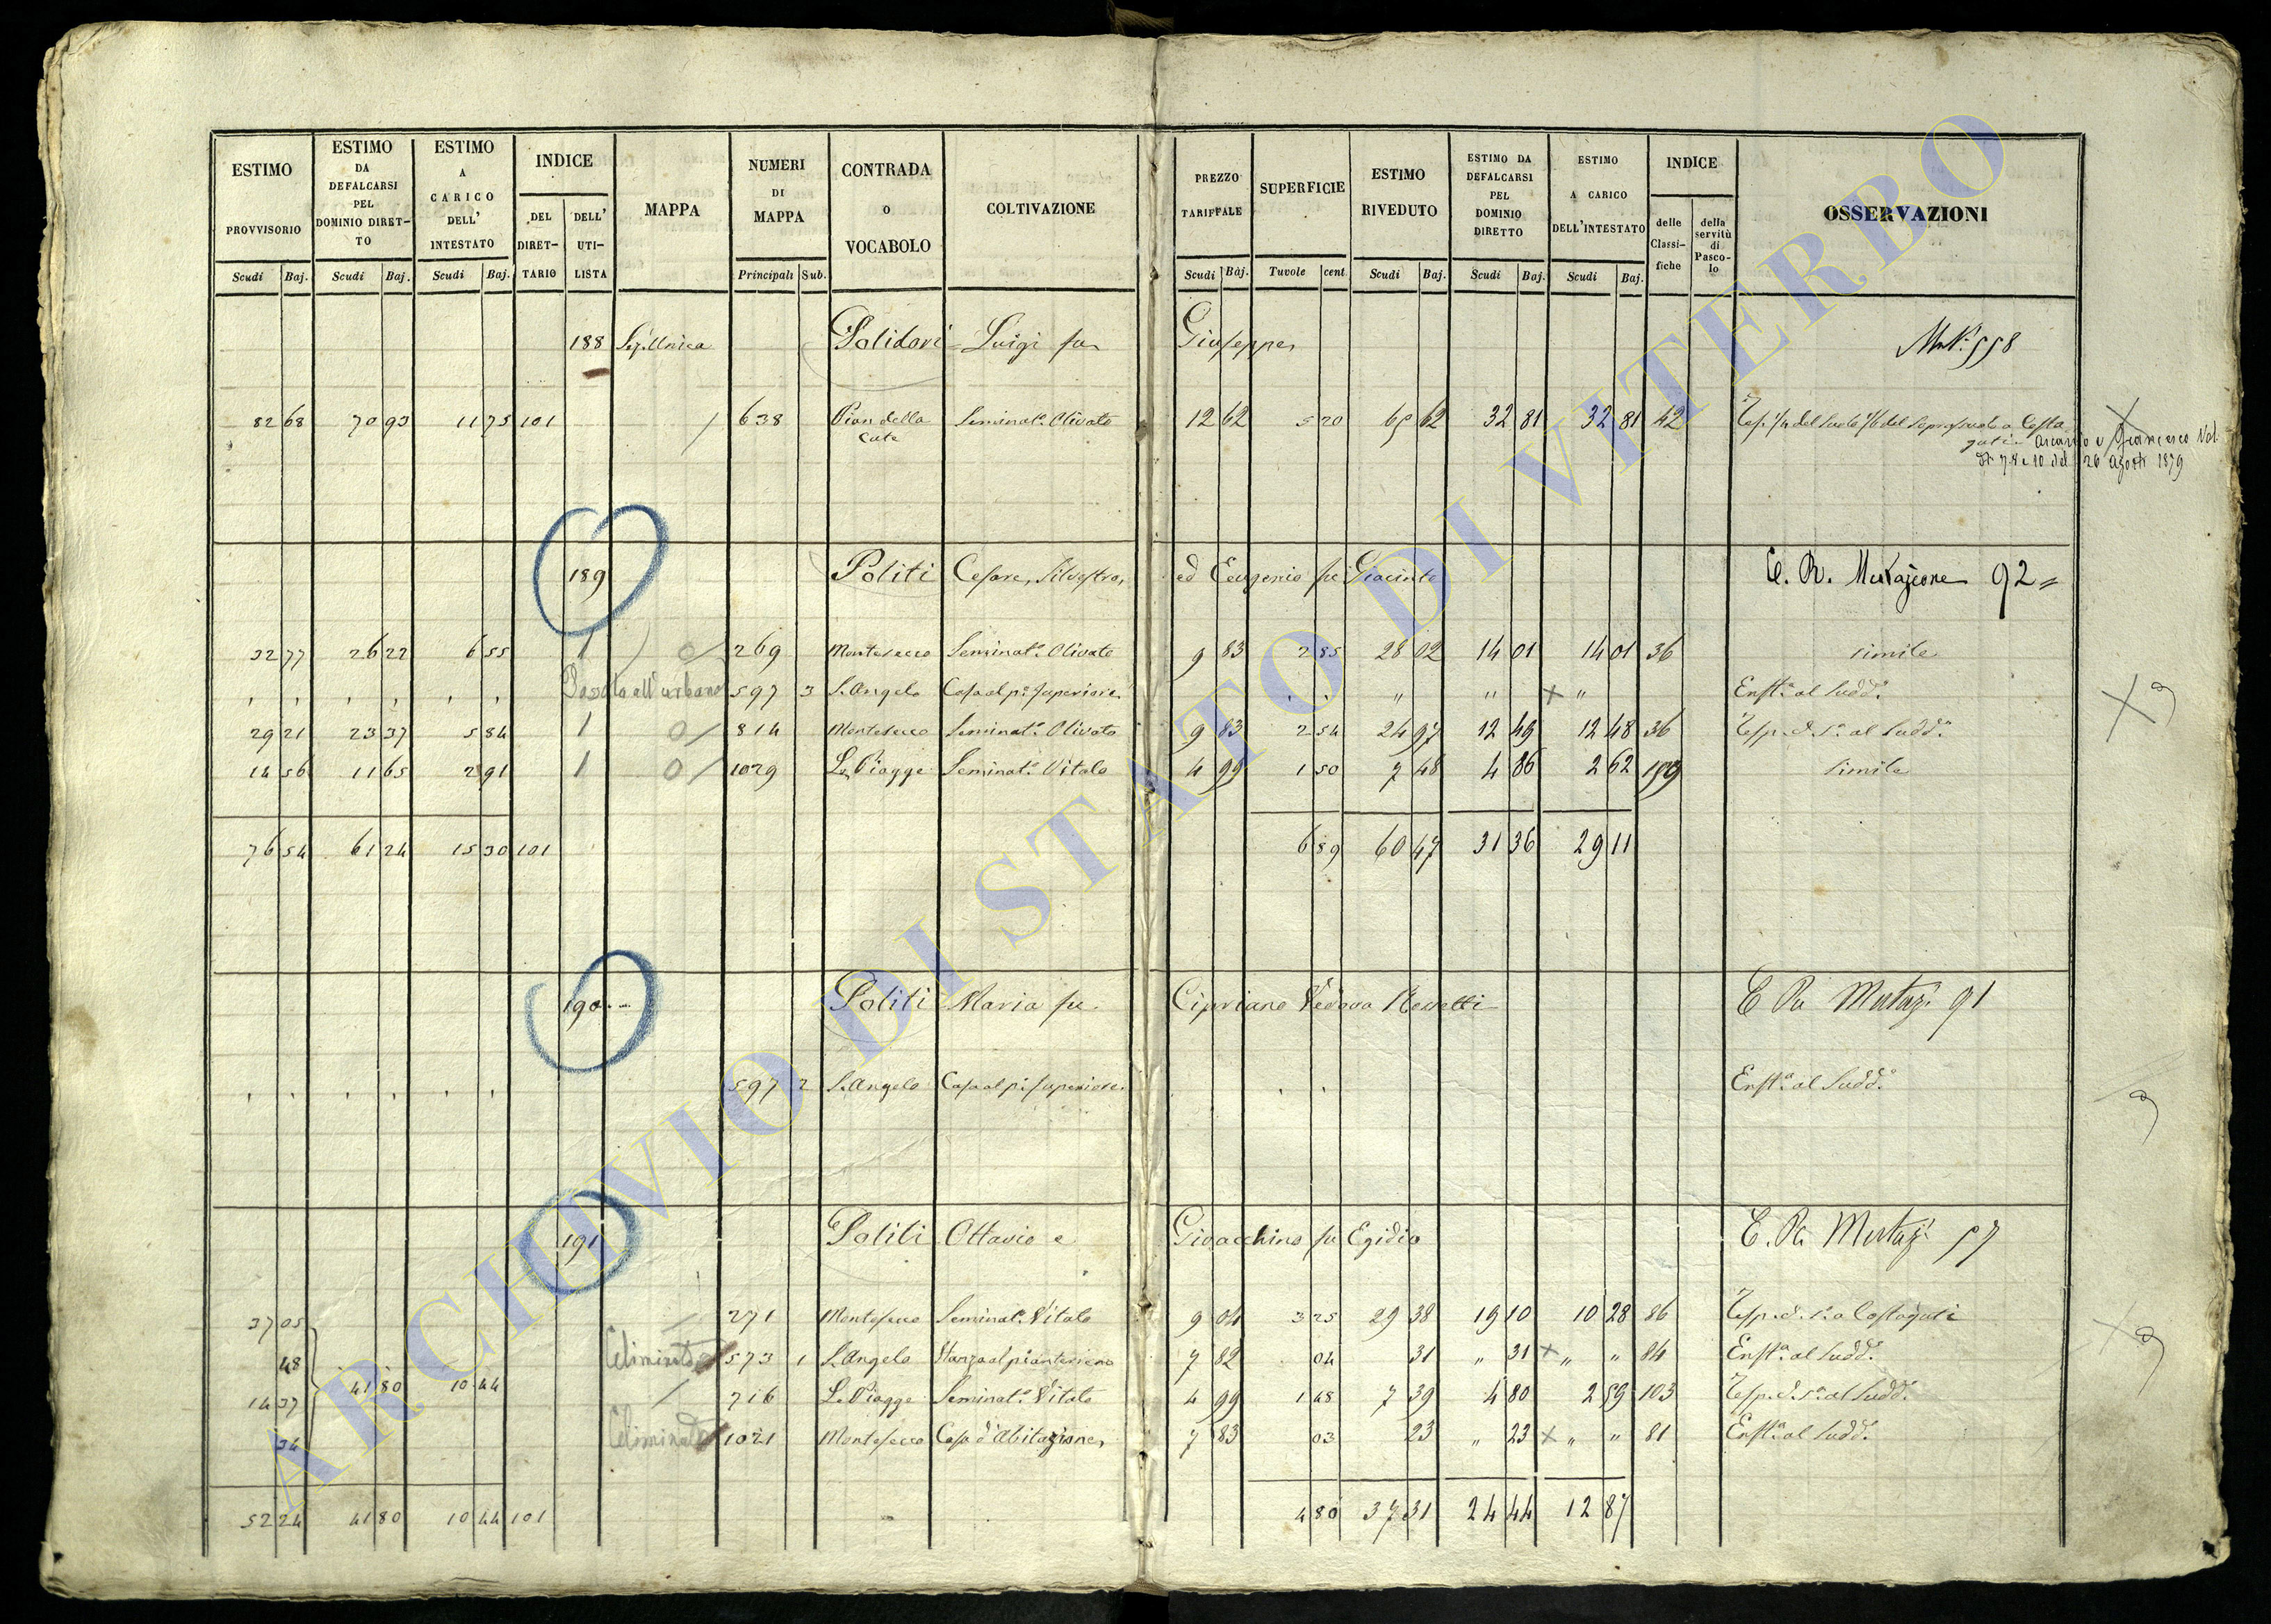 ESTIMO PROVVISORIO
ESTIMO DA DEFALCARSI PEL DOMINIO DIRET-TO
ESTIMO A CARICO DELL' INTESTATO
INDICE
DEL DIRET-TARIO
DELL' UTI-LISTA
MAPPA
NUMERI DI MAPPA
CONTRADA O VOCABOLO
COLTIVAZIONE
PREZZO TARIFFALE
SUPERFICIE
ESTIMO RIVEDUTO
ESTIMO DA DEFALCARSI PEL DOMINIO DIRETTO
ESTIMO A CARICO DELL'INTESTATO
INDICE
delle Classi-fiche
della servitù di Pasco-lo
OSSERVAZIONI
Scudi Baj. Scudi Baj. Scudi Baj. Principali Sub. Scudi Baj. Tavole cent Scudi Baj. Scudi Baj. Scudi Baj.
188 Sez. Unica Polidori Luigi fu Giuseppe 558
82 68 70 93 11 75 101 638 Pian della Seminat.o Olivato 12 62 5 20 65 62 32 81 32 81 42
26 Agosto 1879
189 Politi Cesare, Silvestro, ed Eugenio fu Giacinto C. R. 92
32 77 26 22 6 55 1 0 269 Montesecco Seminat.o Olivato 9 83 2 85 28 02 14 01 14 01 36 simile
Passato all'urbano 597 3 S. Angelo Casa al p.o Superiore " " × " Enft.a al Sudd.o
29 21 23 37 5 84 1 0 814 Montesecco Seminat.o Olivato 9 83 2 54 24 97 12 49 12 48 36 al Sudd.o
14 56 11 65 2 91 1 0 1029 Le Piagge Seminat.o Vitato 4 99 1 50 7 48 4 86 2 62 simile
76 54 61 24 15 30 101 6 89 60 47 31 36 29 11
190 Politi Maria fu Cipriano Vedova 91
597 2 S. Angelo Casa al p.o Superiore Enft.a al Sudd.o
191 Politi Ottavio e Gioacchino fu Egidio
37 05 271 Montesecco Seminat.o Vitato 9 04 3 25 29 38 19 10 10 28 86 a Costaguti
48 Eliminato 573 1 S. Angelo Stanza al pianterreno 7 82 04 31 " 31 × " " 84 Enft.a al Sudd.o
41 80 10 44
14 37 716 Le Piagge Seminat.o Vitato 4 99 1 48 7 39 4 80 2 59 103 al Sudd.o
34 Eliminato 1021 Montesecco Casa d'Abitazione 7 83 03 23 " 23 × " " 81 Enft.a al Sudd.o
52 24 41 80 10 44 101 4 80 37 31 24 44 12 87
ARCHIVIO DI STATO DI VITERBO